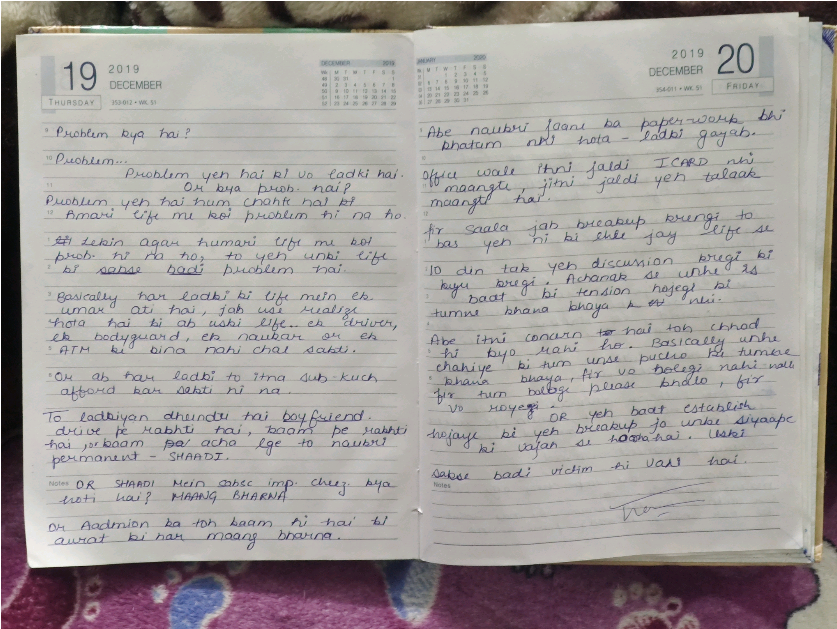 19
2019
DECEMBER
THURSDAY
353-012 • WK. 51
DECEMBER 2019
Problem kya hai?
Problem...
Problem yeh hai ki vo ladki hai.
Or kya prob. hai?
Problem yeh hai hum chahte hai ki
Amari life me koi problem hi na ho.
Lekin agar humari life me koi
prob. hi na ho, to yeh unki life
ki sabse badi problem hai.
Basically har ladki ki life mein ek
umar ati hai, jab use realize
hota hai ki ab uski life.. ek driver,
ek bodyguard, ek naukar or ek
ATM ki bina nahi chal sakti.
Or ab har ladki to itna sub-kuch
afford kar sakti ni na
To ladkiyan dhundti hai boyfriend.
drive pe rakhti hai, kaam pe rakhti
hai, or kaam acha lge to naukri
permanent - SHAADI.
Notes
OR SHAADI mein sabse imp. cheez kya
hoti hai? MAANG BHARNA
Or Aadmion ka toh kaam hi hai ki
aurat ki har maang bharna.
JANUARY 2020
2019
DECEMBER
20
354-011 • WK. 51
FRIDAY
Abe naukri jaane ka paper-work bhi
khatum nhi hota - ladki gayab.
Office wale itni jaldi ICARD nhi
maangte, jitni jaldi yeh talaak
maangti hai.
fir Saala jab breakup krengi to
bas yeh ni ki chle jay life se
10 din tak yeh discussion kregi ki
kyu kregi. Achanak se unhe is
baat ki tension hojegi ki
tumne khana khaya k nhi.
Abe itni concern hai toh chhod
hi kyo rahi ho. Basically unhe
chahiye ki tum unse pucho ki tumne
khana khaya, fir vo bolegi nahi
fir tum bologe please khalo, fir
vo royegi.
OR yeh baat establish
hojaye ki yeh breakup jo unke siyaape
ki vajah se hai. Uski
sabse badi victim hi vahi hai.
Notes